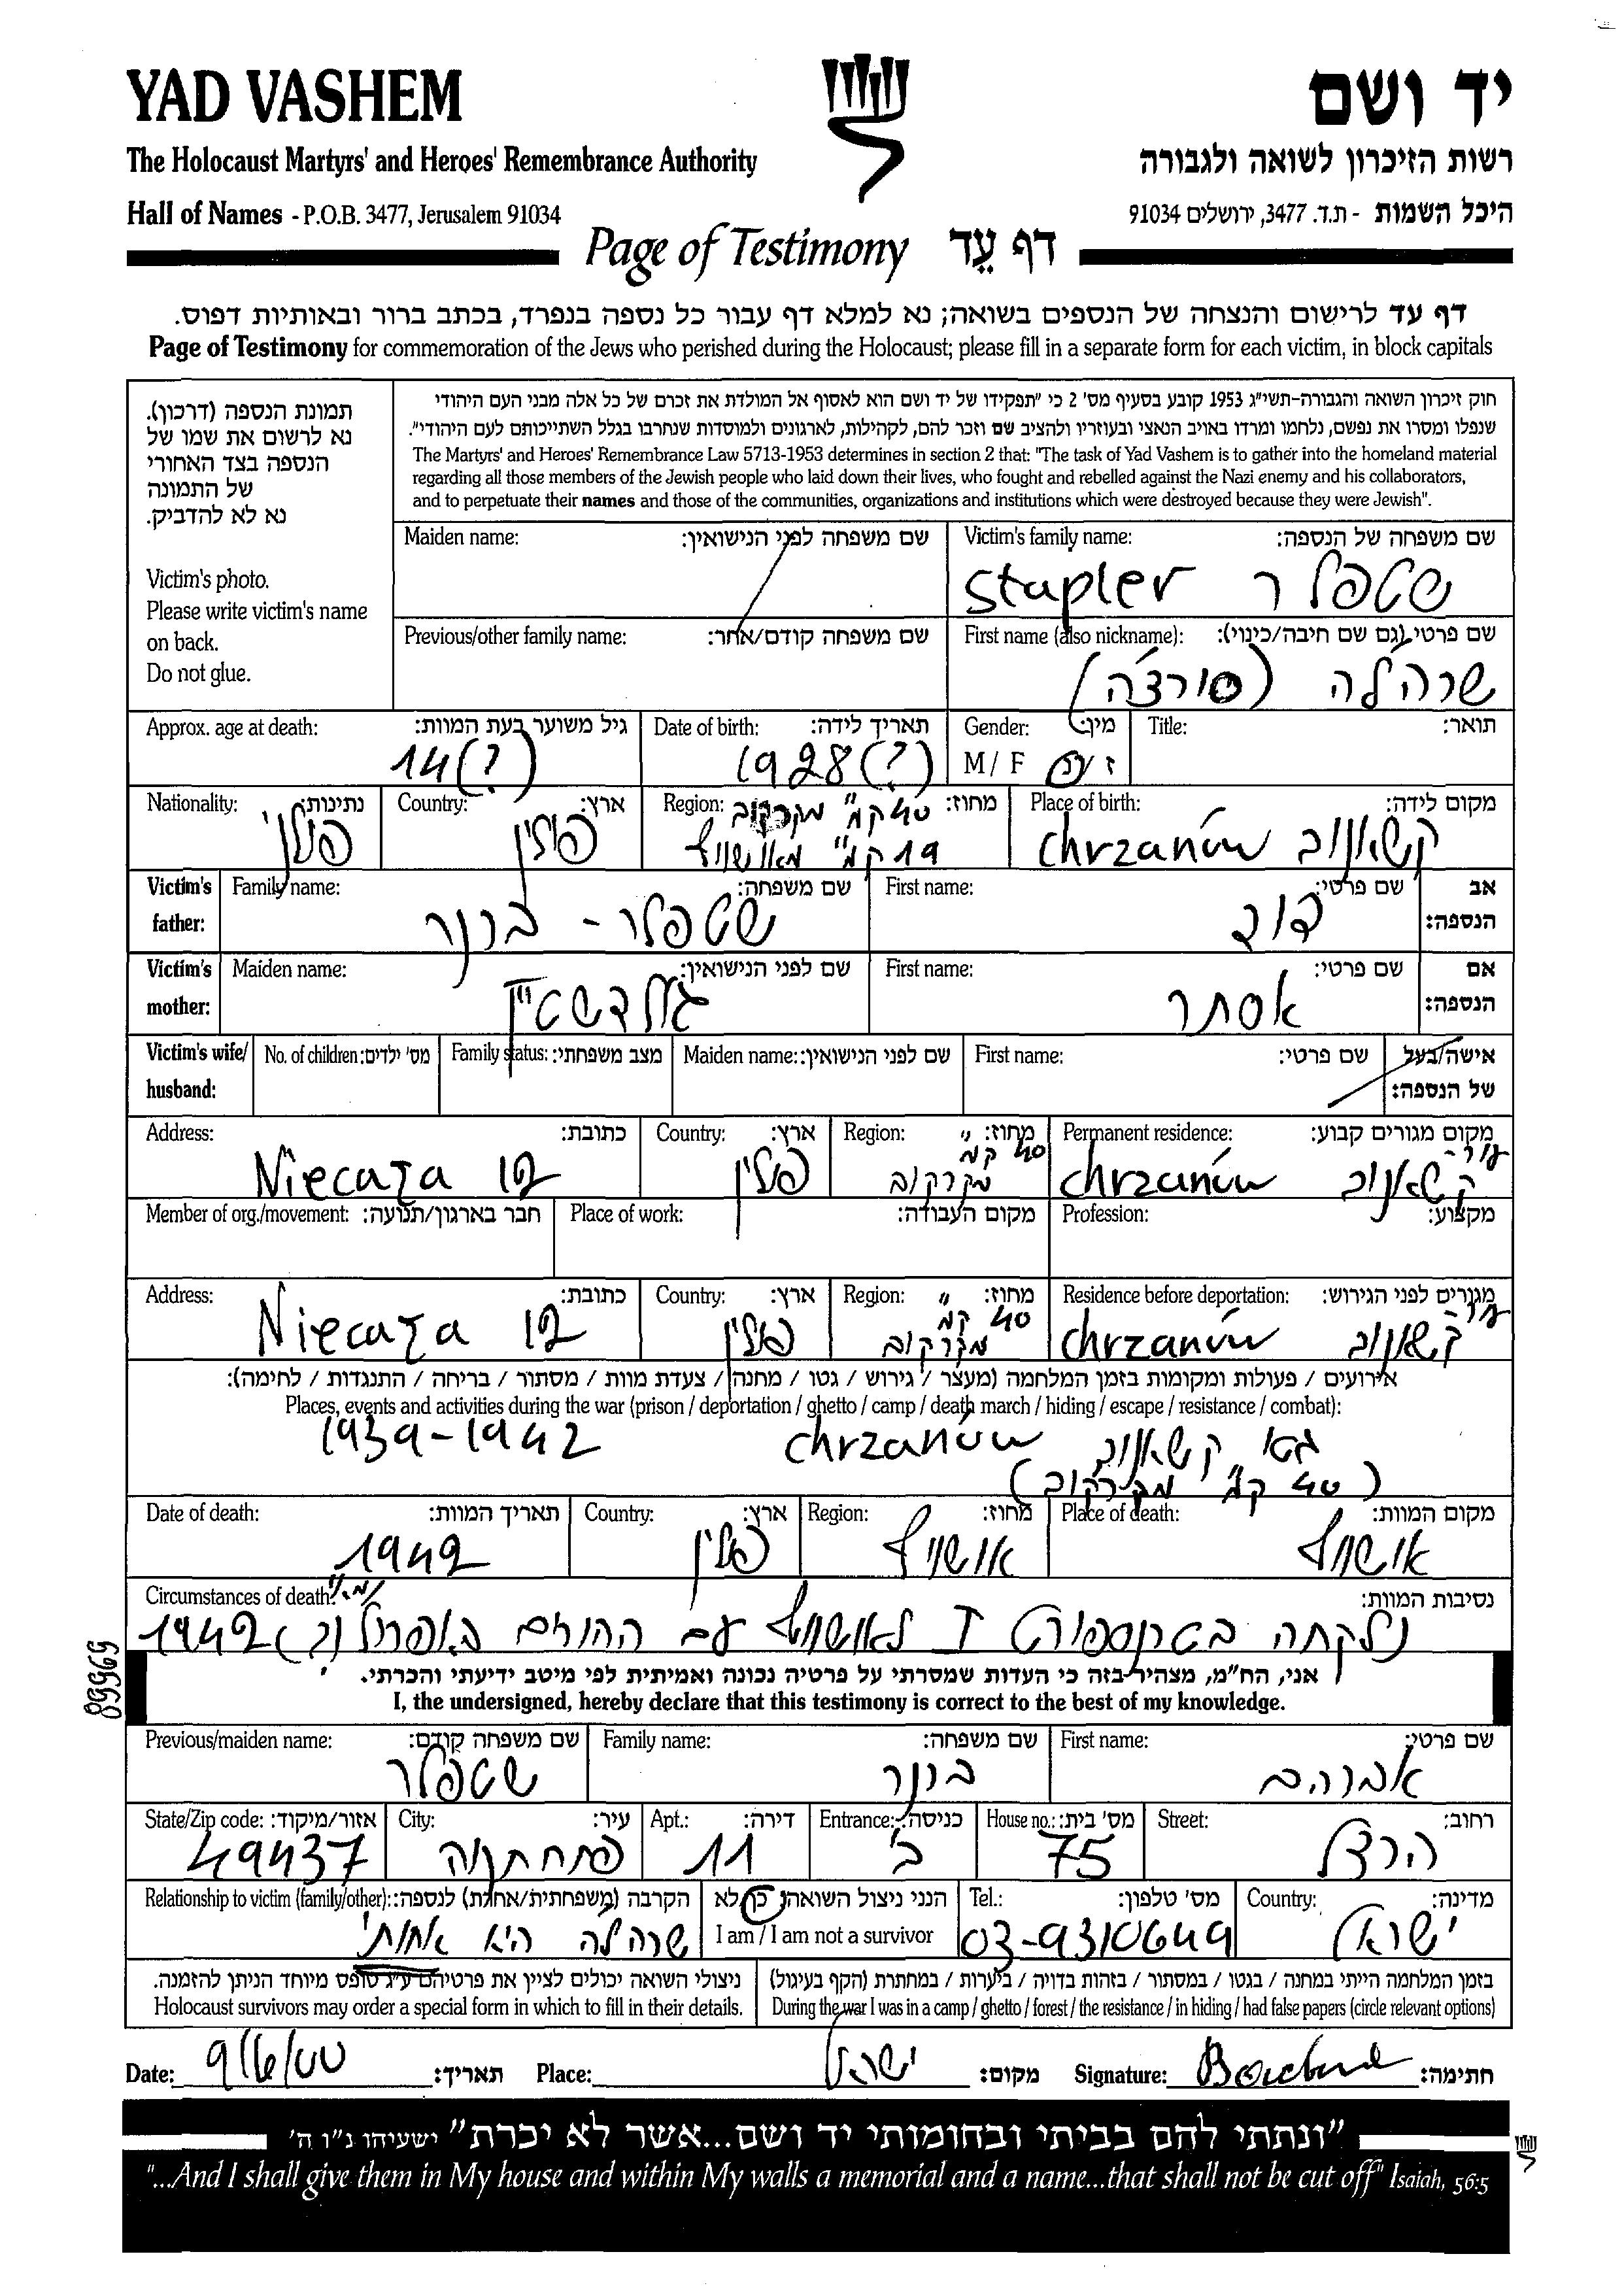 YAD VASHEM
יד ושם
The Holocaust Martyrs' and Heroes' Remembrance Authority
רשות הזיכרון לשואה ולגבורה
Hall of Names - P.O.B. 3477, Jerusalem 91034
היכל השמות - ת.ד. 3477, ירושלים 91034
Page of Testimony דף עֵד
דף עד לרישום והנצחה של הנספים בשואה; נא למלא דף עבור כל נספה בנפרד, בכתב ברור ובאותיות דפוס.
Page of Testimony for commemoration of the Jews who perished during the Holocaust; please fill in a separate form for each victim, in block capitals
תמונת הנספה (דרכון).
נא לרשום את שמו של
הנספה בצד האחורי
של התמונה
נא לא להדביק.
Victim's photo.
Please write victim's name
on back.
Do not glue.
חוק זיכרון השואה והגבורה-תשי"ג 1953 קובע בסעיף מס' 2 כי "תפקידו של יד ושם הוא לאסוף אל המולדת את זכרם של כל אלה מבני העם היהודי
שנפלו ומסרו את נפשם, נלחמו ומרדו באויב הנאצי ובעוזריו ולהציב שם וזכר להם, לקהילות, לארגונים ולמוסדות שנחרבו בגלל השתייכותם לעם היהודי".
The Martyrs' and Heroes' Remembrance Law 5713-1953 determines in section 2 that: "The task of Yad Vashem is to gather into the homeland material
regarding all those members of the Jewish people who laid down their lives, who fought and rebelled against the Nazi enemy and his collaborators,
and to perpetuate their names and those of the communities, organizations and institutions which were destroyed because they were Jewish".
Victim's family name: שם משפחה של הנספה:
Stapler שטפלר
Maiden name: שם משפחה לפני הנישואין:
First name (also nickname): שם פרטי (גם שם חיבה/כינוי):
שרה'לה (סורצ'ה)
Previous/other family name: שם משפחה קודם/אחר:
Title: תואר:
Gender: מין:
M / F ז / נ
Date of birth: תאריך לידה:
1928 (?)
Approx. age at death: גיל משוער בעת המוות:
14 (?)
Place of birth: מקום לידה:
chrzanów קשאנוב
Region: מחוז:
40 ק"מ מקרקוב
19 ק"מ מאושויץ
Country: ארץ:
פולין
Nationality: נתינות:
פולני
Victim's father: אב הנספה:
First name: שם פרטי:
דוד
Family name: שם משפחה:
שטפלר - בונר
Victim's mother: אם הנספה:
First name: שם פרטי:
אסתר
Maiden name: שם לפני הנישואין:
גולדשטיין
Victim's wife/ husband: אישה/בעל של הנספה:
First name: שם פרטי:
Maiden name: שם לפני הנישואין:
Family status: מצב משפחתי:
No. of children: מס' ילדים:
Permanent residence: מקום מגורים קבוע:
chrzanów קשאנוב
Region: מחוז:
40 ק"מ
מקרקוב
Country: ארץ:
פולין
Address: כתובת:
Niecaza 12
Profession: מקצוע:
Place of work: מקום העבודה:
Member of org./movement: חבר בארגון/תנועה:
Residence before deportation: מגורים לפני הגירוש:
chrzanów קשאנוב
Region: מחוז:
40 ק"מ
מקרקוב
Country: ארץ:
פולין
Address: כתובת:
Niecaza 12
אירועים / פעולות ומקומות בזמן המלחמה (מעצר / גירוש / גטו / מחנה / צעדת מוות / מסתור / בריחה / התנגדות / לחימה):
Places, events and activities during the war (prison / deportation / ghetto / camp / death march / hiding / escape / resistance / combat):
גטו קשאנוב chrzanów 1939-1942
(40 ק"מ מקרקוב)
Place of death: מקום המוות:
אושויץ
Region: מחוז:
אושויץ
Country: ארץ:
פולין
Date of death: תאריך המוות:
1942
Circumstances of death: נסיבות המוות:
נלקחה בטרנספורט I לאושויץ עם ההורים באפריל (?) 1942
89969
אני, הח"מ, מצהיר בזה כי העדות שמסרתי על פרטיה נכונה ואמיתית לפי מיטב ידיעתי והכרתי.
I, the undersigned, hereby declare that this testimony is correct to the best of my knowledge.
First name: שם פרטי:
אברהם
Family name: שם משפחה:
בונר
Previous/maiden name: שם משפחה קודם:
שטפלר
Street: רחוב:
הרצל
House no.: מס' בית:
75
Entrance: כניסה:
ב'
Apt.: דירה:
11
City: עיר:
פתח תקוה
State/Zip code: אזור/מיקוד:
49437
Country: מדינה:
ישראל
Tel.: מס' טלפון:
03-9310649
הנני ניצול השואה: כן/לא
I am / I am not a survivor
Relationship to victim (family/other): הקרבה (משפחתית/אחרת) לנספה:
שרה'לה היא אחותי
בזמן המלחמה הייתי במחנה / בגטו / במסתור / בזהות בדויה / ביערות / במחתרת (הקף בעיגול)
During the war I was in a camp / ghetto / forest / the resistance / in hiding / had false papers (circle relevant options)
ניצולי השואה יכולים לציין את פרטיהם ע"ג טופס מיוחד הניתן להזמנה.
Holocaust survivors may order a special form in which to fill in their details.
Date: 9/6/00 תאריך: Place: ישראל מקום: Signature: חתימה:
"ונתתי להם בביתי ובחומותי יד ושם...אשר לא יכרת" ישעיהו נ"ו ה'
"...And I shall give them in My house and within My walls a memorial and a name...that shall not be cut off" Isaiah, 56:5